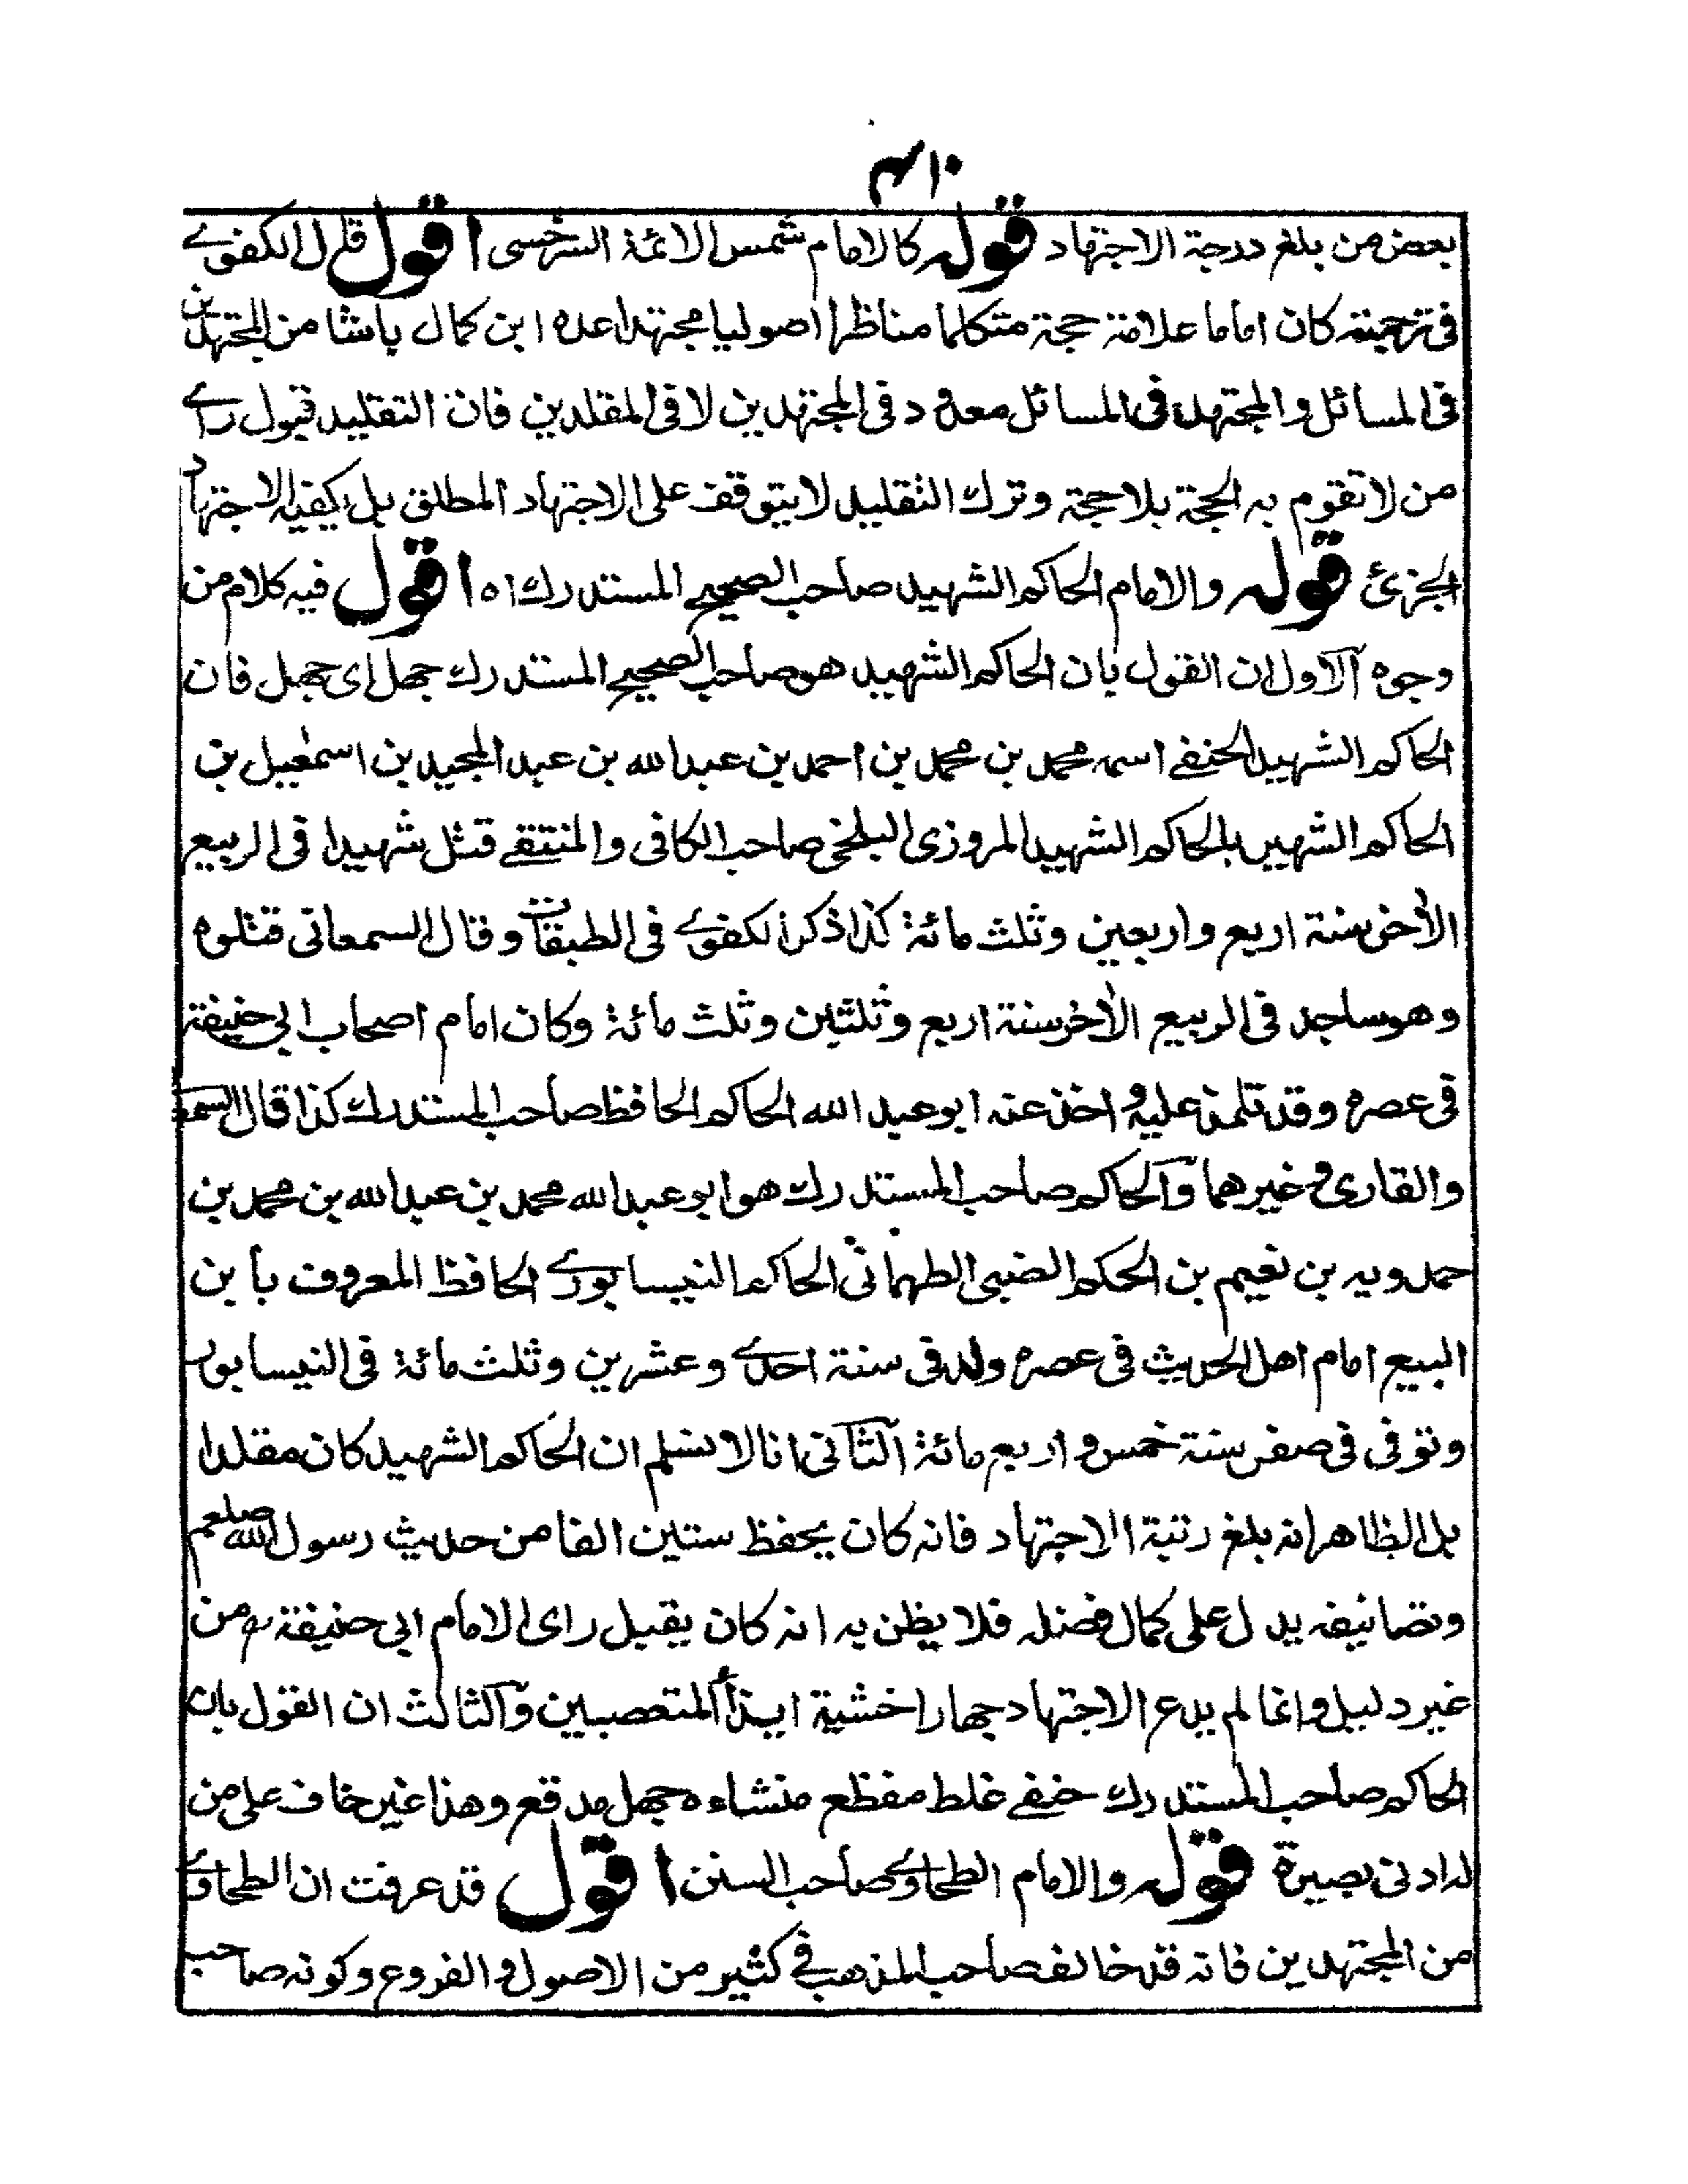 ۴۱۰
بعض من بلغ درجة الاجتهاد قوله كالامام شمس الائمة السرخسى اقول قال الكفوے
فى ترجمته كان اماما علامة حجة متكلما مناظرا اصوليا مجتهدا عده ابن كمال پاشا من المجتهدين
فى المسائل والمجتهد فى المسائل معدود فى المجتهدين لا فى المقلدين فان التقليد قبول راے
من لا تقوم به الحجة بلا حجة وترك التقليد لا يتوقف على الاجتهاد المطلق بل يكفيه الاجتهاد
الجزئ قوله والامام الحاكم الشهيد صاحب الصحيح المستدرك اه اقول فيه كلام من
وجوه الاول ان القول بان الحاكم الشهيد هو صاحب الصحيح المستدرك جهل اى جهل فان
الحاكم الشهيد الحنفے اسمه محمد بن محمد بن احمد بن عبد الله بن عبد المجيد بن اسمٰعيل بن
الحاكم الشهير بالحاكم الشهيد المروزى البلخى صاحب الكافى والمنتقے قتل شهيدا فى الربيع
الاٰخر سنة اربع واربعين وثلث مائة كذا ذكر الكفوے فى الطبقات وقال السمعانى قتلوه
وهو ساجد فى الربيع الاٰخر سنة اربع وثلثين وثلث مائة وكان امام اصحاب ابى حنيفة
فى عصره وقد تلمذ عليه و اخذ عنه ابو عبد الله الحاكم الحافظ صاحب المستدرك كذا قال
والقارى وغيرهما والحاكم صاحب المستدرك هو ابو عبد الله محمد بن عبد الله بن محمد بن
حمدويه بن نعيم بن الحكم الضبى الطهمانى الحاكم النيسابورے الحافظ المعروف بابن
البيع امام اهل الحديث فى عصره ولد فى سنة احدے وعشرين وثلث مائة فى النيسابور
وتوفى فى صفر سنة خمس و اربع مائة الثانى انا لا نسلم ان الحاكم الشهيد كان مقلدا
بل الظاهر انه بلغ رتبة الاجتهاد فانه كان يحفظ ستين الفا من حديث رسول الله صلعم
وتصانيفه يدل على كمال فضله فلا يظن به انه كان يقبل راى الامام ابى حنيفة رح من
غير دليل وانما لم يدع الاجتهاد جهارا خشية ايذاء المتعصبين والثالث ان القول بان
الحاكم صاحب المستدرك حنفے غلط مفظع منشاءه جهل مدقع وهذا غير خاف على من
له ادنى بصيرة قوله والامام الطحاوے صاحب السنن اقول قد عرفت ان الطحاوے
من المجتهدين فانه قد خالف صاحب المذهب فے كثير من الاصول والفروع وكونه صاحب